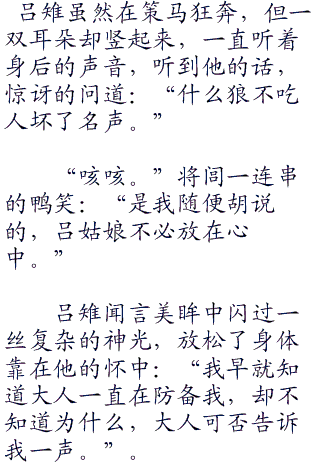 吕雉虽然在策马狂奔，但一
双耳朵却竖起来，一直听着
身后的声音，听到他的话，
惊讶的问道：“什么狼不吃
人坏了名声。”
“咳咳。”将闾一连串
的鸭笑：“是我随便胡说
的，吕姑娘不必放在心
中。”
吕雉闻言美眸中闪过一
丝复杂的神光，放松了身体
靠在他的怀中：“我早就知
道大人一直在防备我，却不
知道为什么，大人可否告诉
我一声。”。